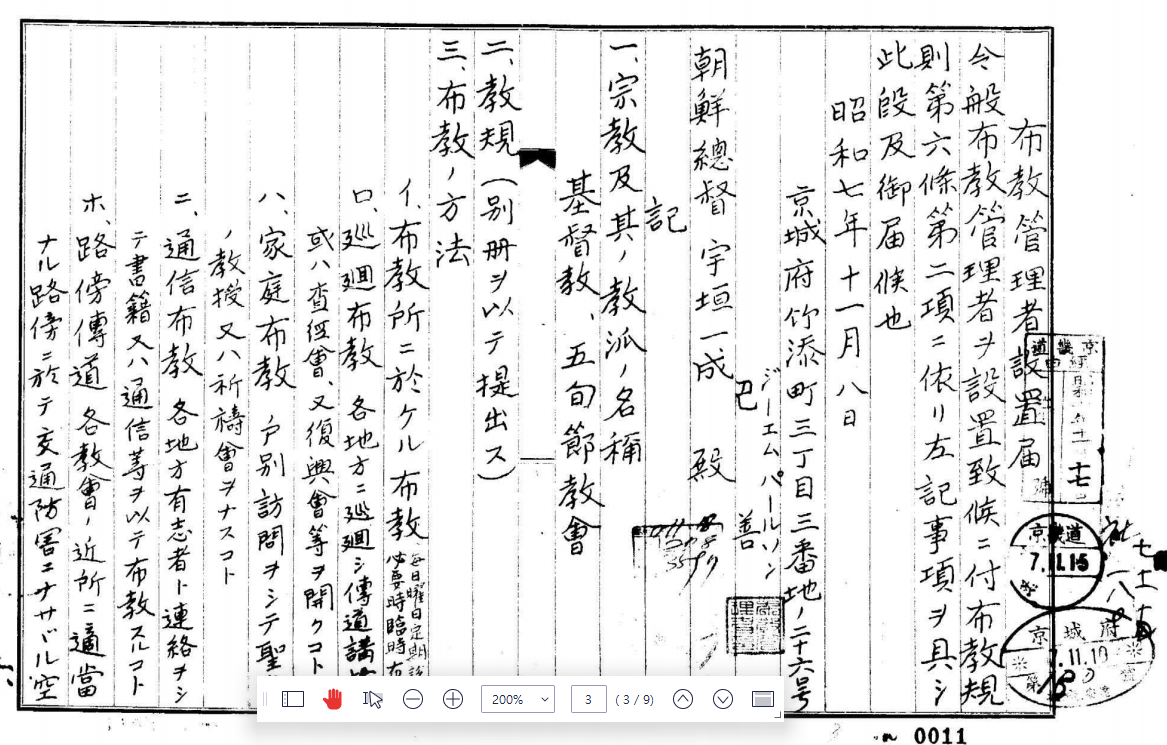 布教管理者設置届
今般布教管理者ヲ設置致候ニ付布教規
則第六條第二項ニ依リ左記事項ヲ具シ
此段及御届候也
昭和七年十一月八日
京城府竹添町三丁目三番地ノ二十六号
ジーエムパールソン
巴 善
朝鮮總督 宇垣一成 殿
記
一、宗教及其ノ教派ノ名稱
基督教、五旬節教會
二、教規(別册ヲ以テ提出ス)
三、布教ノ方法
イ、布教所ニ於ケル布教 毎日曜日定期
必要時臨時布
ロ、廵廻布教 各地方ニ廵廻シ傳道講
或ハ査経會、又復興會等ヲ開クコト
ハ、家庭布教 戸別訪問ヲシテ聖
ノ教授又ハ祈禱會ヲナスコト
ニ、通信布教 各地方有志者ト連絡ヲシ
テ書籍又ハ通信等ヲ以テ布教スルコト
ホ、路傍傳道 各教會ノ近所ニ適當
ナル路傍ニ於テ交通防害ニナサバル空
京畿道
7.11.15
京城府
200%
3
(3 / 9)
0011